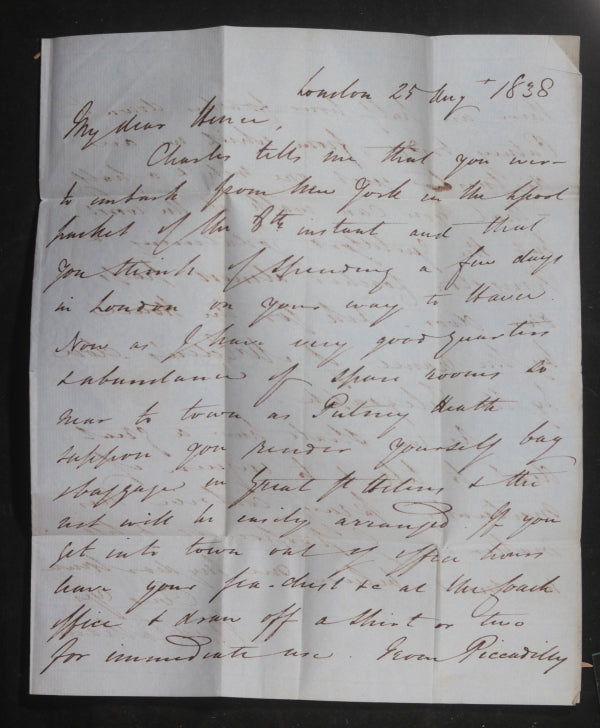 London 25 Augt 1838
My dear
Charles tells me that you were
to embark from New York in the Lpool
packet of the 8th instant and that
you think of spending a few days
in London on your way to Havre.
Now as I have very good quarters
& abundance of spare rooms so
near to town as Putney Heath
suppose you render yourself bag
& baggage in Great St Helens & the
rest will be easily arranged. If you
get into town out of office hours
leave your &c at the Coach
office & draw off a shirt or two
for immediate use. From Piccadilly